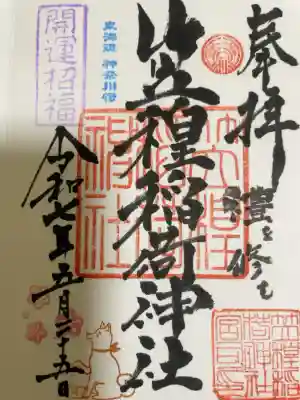 奉拝
禮を修む
東海道 神奈川宿
笠䅣稲荷神社
開運招福
令和七年五月二十五日